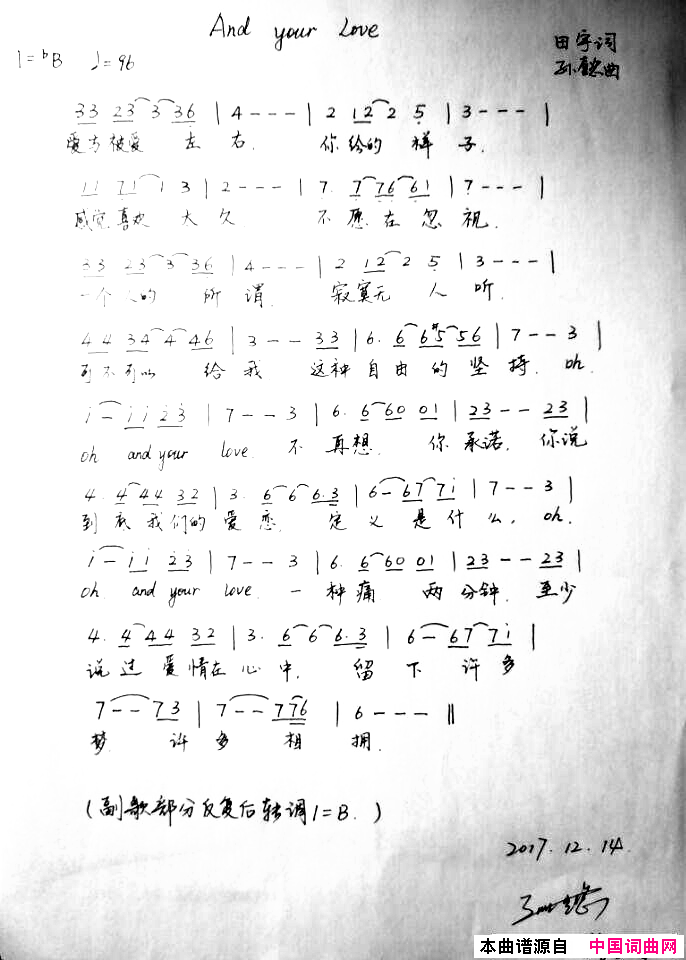 And your Love
1=ᵇB ♩=96
田宇词
孙 曲
33 23 3 36 | 4 - - - | 2 12 2 5 | 3 - - - |
爱与被爱 左 右. 你给的 样 子.
11 71 1 3 | 2 - - - | 7. 7 76 61 | 7 - - - |
感觉喜欢 太 久 不 愿 在 忽 视.
33 23 3 36 | 4 - - - | 2 12 2 5 | 3 - - - |
一个人的 所 谓. 寂寞无 人 听.
44 34 4 46 | 3 - - 33 | 6. 6 6#5 56 | 7 - - 3 |
可不可以 给 我 这种 自 由 的 坚 持. oh.
i - i i 23 | 7 - - 3 | 6. 6 60 01 | 23 - - 23 |
oh and your love. 不 再 想. 你 承诺. 你说
4. 4 44 32 | 3. 6 6 6.3 | 6 - 67 7i | 7 - - 3 |
到 底 我们的 爱 恋. 定 义 是 什 么. oh.
i - i i 23 | 7 - - 3 | 6. 6 60 01 | 23 - - 23 |
oh. and your love. 一 种 痛 两 分钟. 至少
4. 4 44 32 | 3. 6 6 6.3 | 6 - 67 7i |
说 过 爱 情在 心 中. 留 下 许 多
7 - - 73 | 7 - - 776 | 6 - - - ‖
梦. 许 多 相 拥.
(副歌部分反复后转调1=B.)
2017.12.14
本曲谱源自 中国词曲网